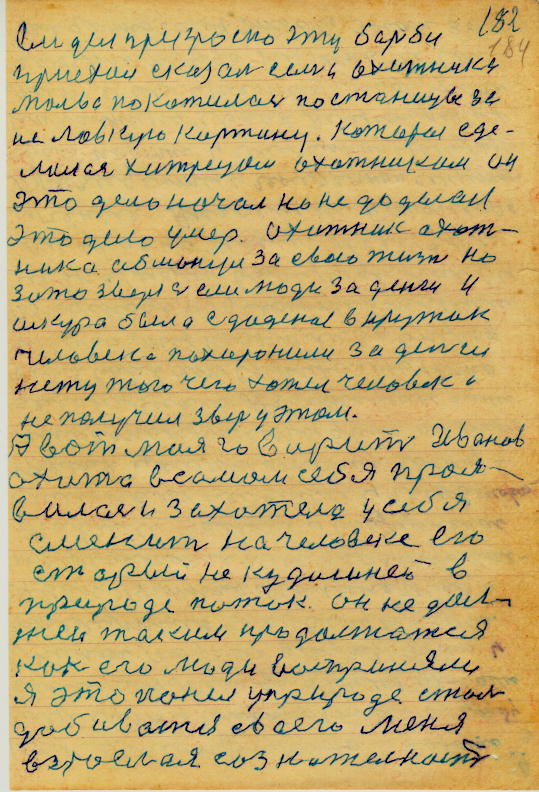 182
184
Ем дел при просто эту борби
приехал сказал семи охотника
молва покотилася по станице за
не ловкую картину. Которая сде-
лался хитрецом охотником он
это дело начал но не доделал
Это дело умер. Охотник охот-
ника обманул за свою жизн но
зато зверя ели люди за денги и
шкура была сдаденая в кружок
человека похоронили за денги
нету того чего хотел человек
не получил зверу этом.
А вот моя говорит Иванов
охота в самом себя прояв-
вилася и захотела у себя
сменит на человеке его
старый не кудишней в
природе поток. он не дол-
жен таким продолжатся
как его люди восприняли
Я это понел у природе стал
добиватся своего меня
взяслая сознателност